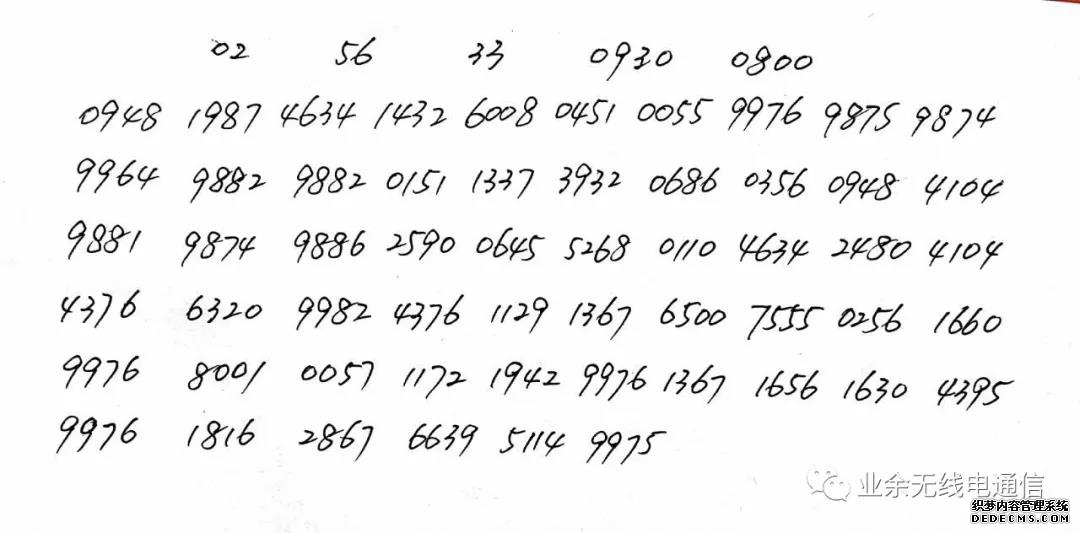 02 56 33 0930 0800
0948 1987 4634 1432 6008 0451 0055 9976 9875 9874
9964 9882 9882 0151 1337 3932 0686 0356 0948 4104
9881 9874 9886 2590 0645 5268 0110 4634 2480 4104
4376 6320 9982 4376 1129 1367 6500 7555 0256 1660
9976 8001 0057 1172 1942 9976 1367 1656 1630 4395
9976 1816 2867 6639 5114 9975
业余无线电通信
织梦内容管理系统
DEDECMS.COM